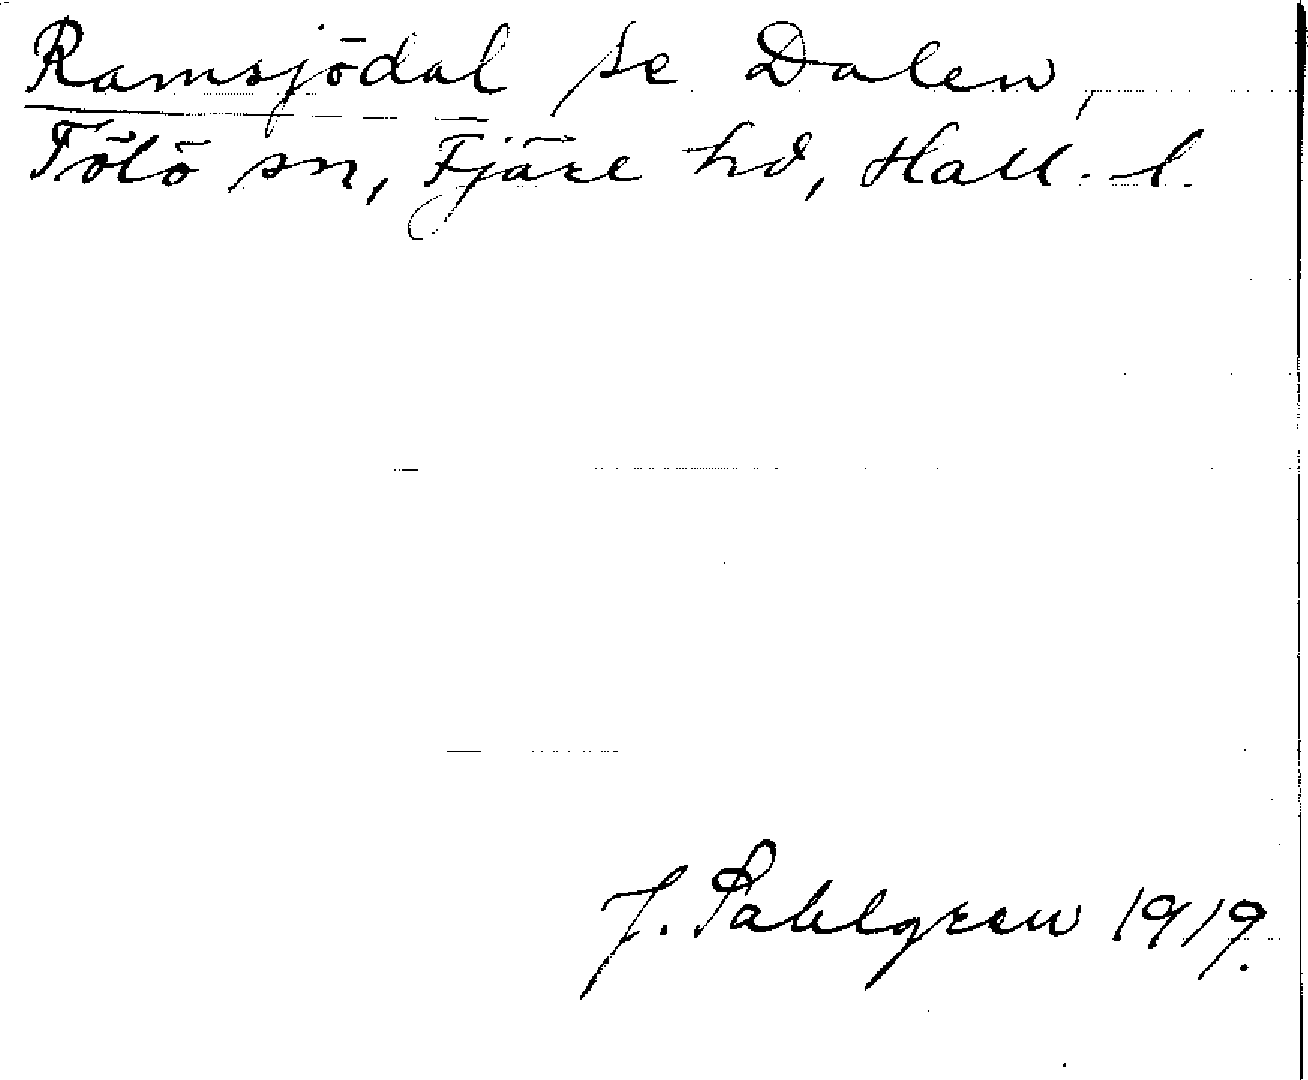 Ramsjödal se Dalen,
Tölö sn, Fjäre hd, Hall. l.
J. Sahlgren 1919.